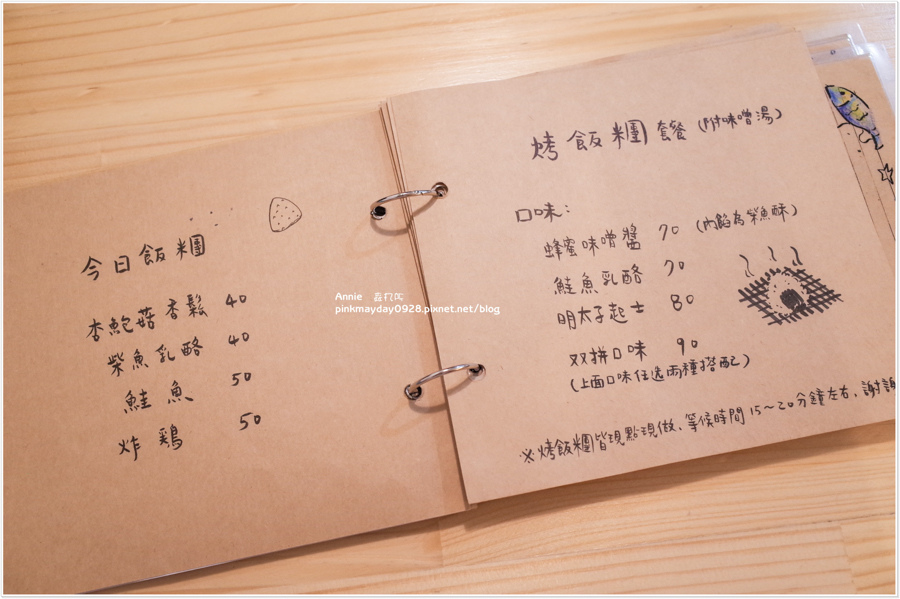 今日飯糰
杏鮑菇香鬆 40
柴魚乳酪 40
鮭魚 50
炸鶏 50
烤飯糰套餐(附味噌湯)
口味:
蜂蜜味噌醬 70 (內餡為柴魚酥)
鮭魚乳酪 70
明太子起士 80
双拼口味 90
(上面口味任選兩種搭配)
※烤飯糰皆現點現做、等候時間15~20分鐘左右,謝謝
Annie
pinkmayday0928.pixnet.net/blog